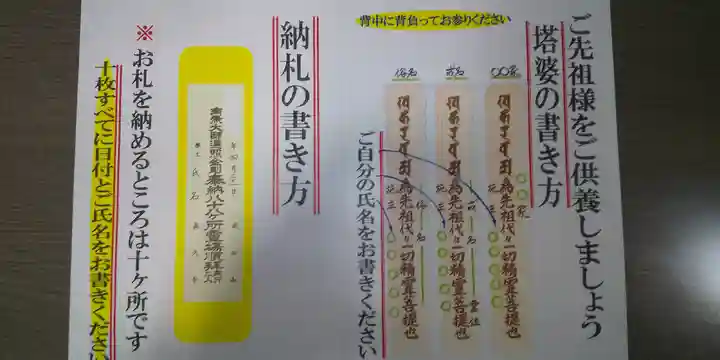 ご先祖様をご供養しましょう
塔婆の書き方
背中に背負ってお参りください
〇〇家
戒名
俗名
為先祖代々一切精霊菩提也
為先祖代々一切精霊菩提也
為先祖代々一切精霊菩提也
施主
施主
施主
ご自分の氏名をお書きください
納札の書き方
南無大師遍照金剛
奉納八十八ヶ所霊場順拝
氏名
※お札を納めるところは十ヶ所です
十枚すべてに日付とご氏名をお書きください